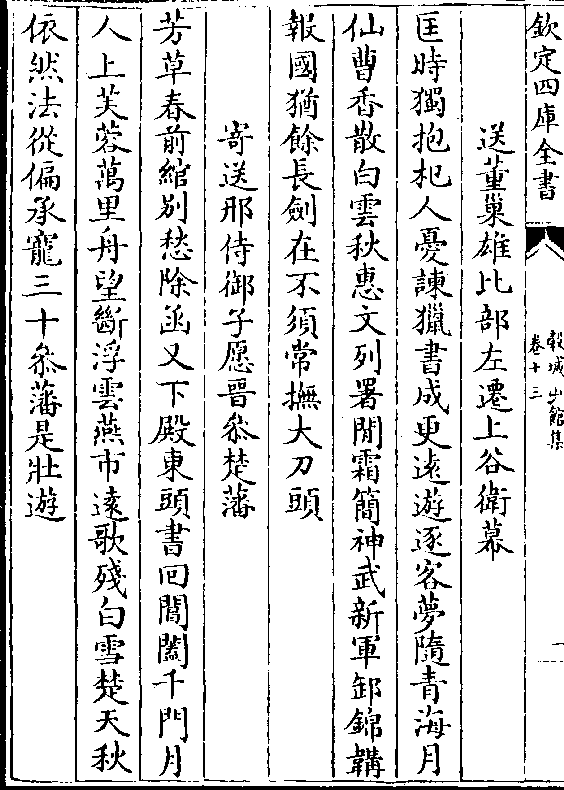 欽定四庫全書
穀城山館集
卷十三
一
送董巢雄比部左遷上谷衛幕
匡時獨抱杞人憂諫獵書成更遠遊逐客夢隨青海月
仙曹香散白雲秋惠文列署閒霜簡神武新軍卸錦韝
報國猶餘長劍在不須常撫大刀頭
寄送邢侍御子愿晉叅楚藩
芳草春前綰别愁除函又下殿東頭書回閶闔千門月
人上芙蓉萬里舟望斷浮雲燕市遠歌殘白雪楚天秋
依然法從偏承寵三十叅藩是壯遊